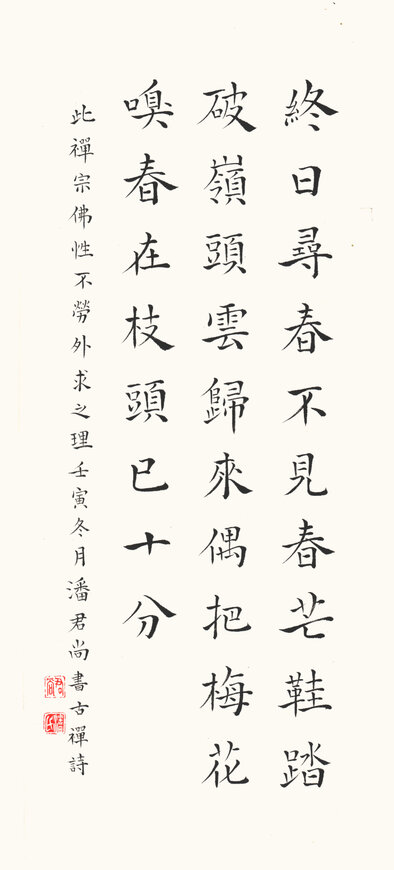 終日尋春不見春芒鞋踏
破嶺頭雲歸來偶把梅花
嗅春在枝頭已十分
此禪宗佛性不勞外求之理壬寅冬月潘君尚書古禪詩